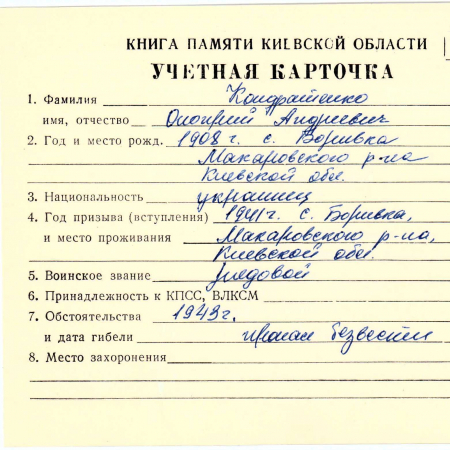 КНИГА ПАМЯТИ КИЕВСКОЙ ОБЛАСТИ
УЧЕТНАЯ КАРТОЧКА
1. Фамилия Кондратенко
имя, отчество Оноприй Андреевич
2. Год и место рожд. 1908 г. с. Боривка
Макаровского р-на
Киевской обл.
3. Национальность украинец
4. Год призыва (вступления) 1941 г. с. Боривка,
и место проживания Макаровского р-на,
Киевской обл.
5. Воинское звание рядовой
6. Принадлежность к КПСС, ВЛКСМ
7. Обстоятельства 1943 г.
и дата гибели пропал безвести
8. Место захоронения